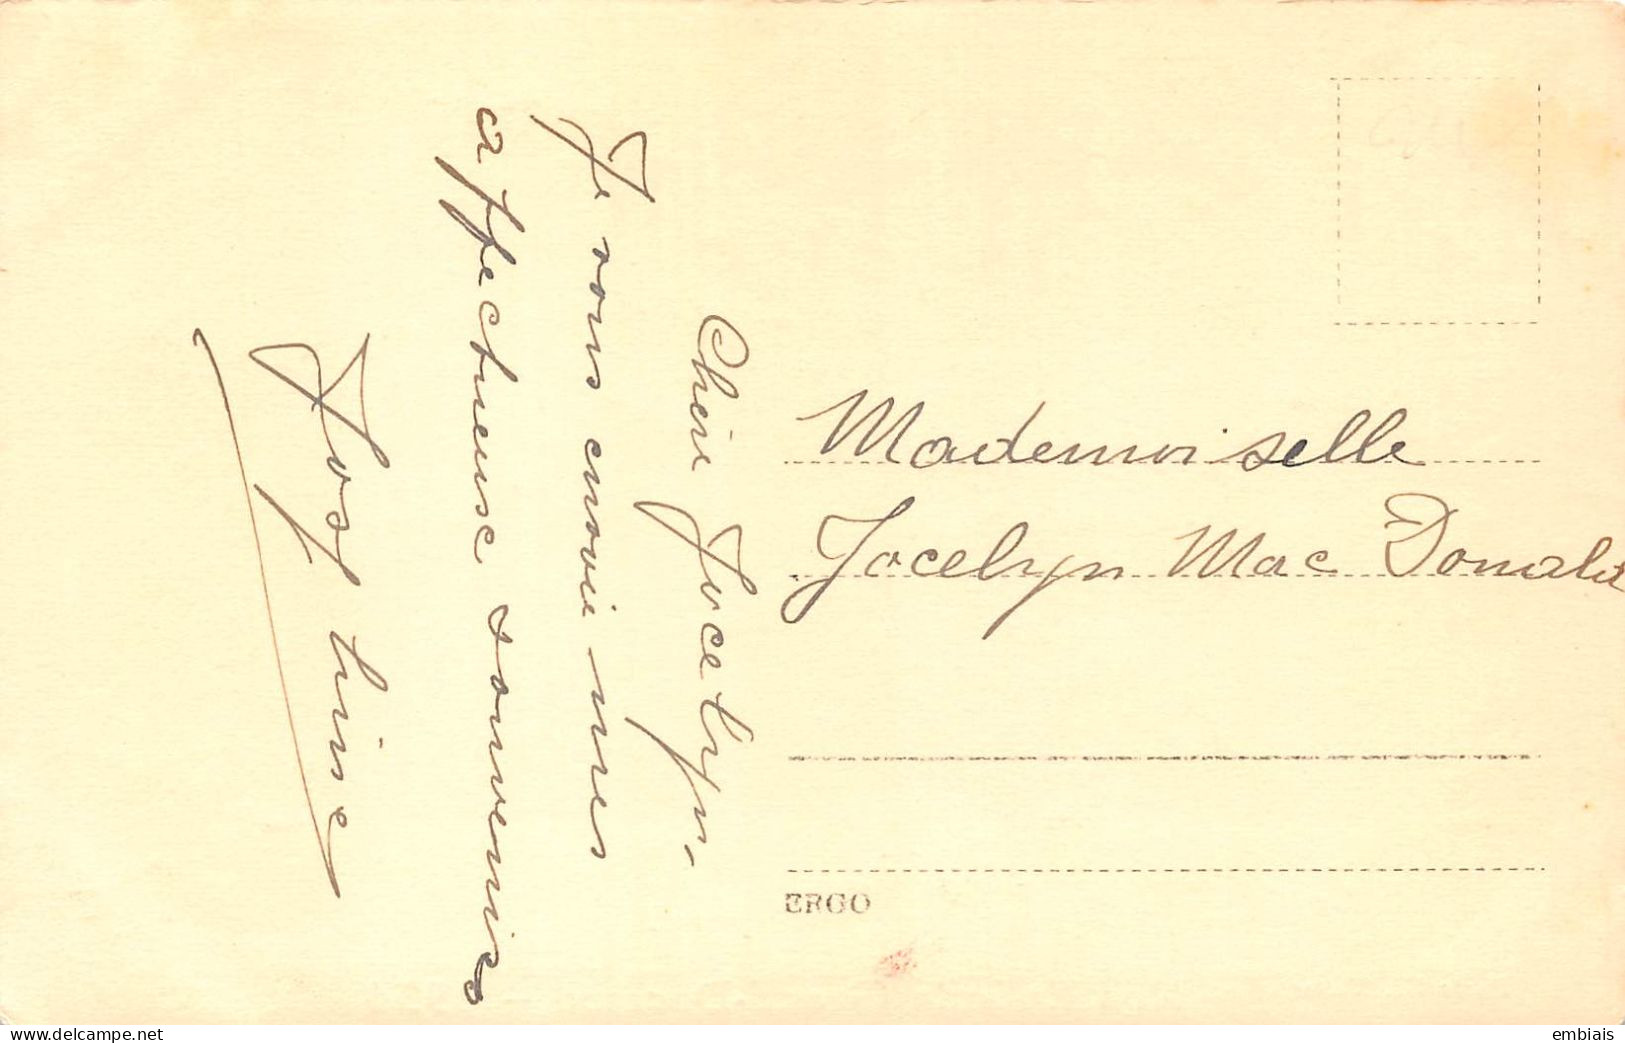 Chère Jocelyn,
Je vous envoie mes
affectueuse souvenirs
Mademoiselle
Jocelyn Mac Donald
ERGO
www.delcampe.net
embiais